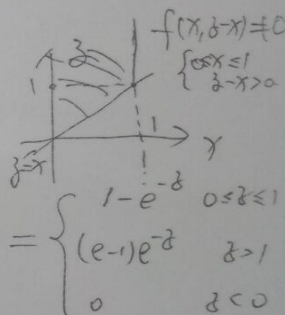 f(x, z-x) ≠ 0
{ 0≤x≤1
z-x>0
z
1
1
x
z=x
= { 1-e^{-z}  0≤z≤1
(e-1)e^{-z}  z>1
0  z<0